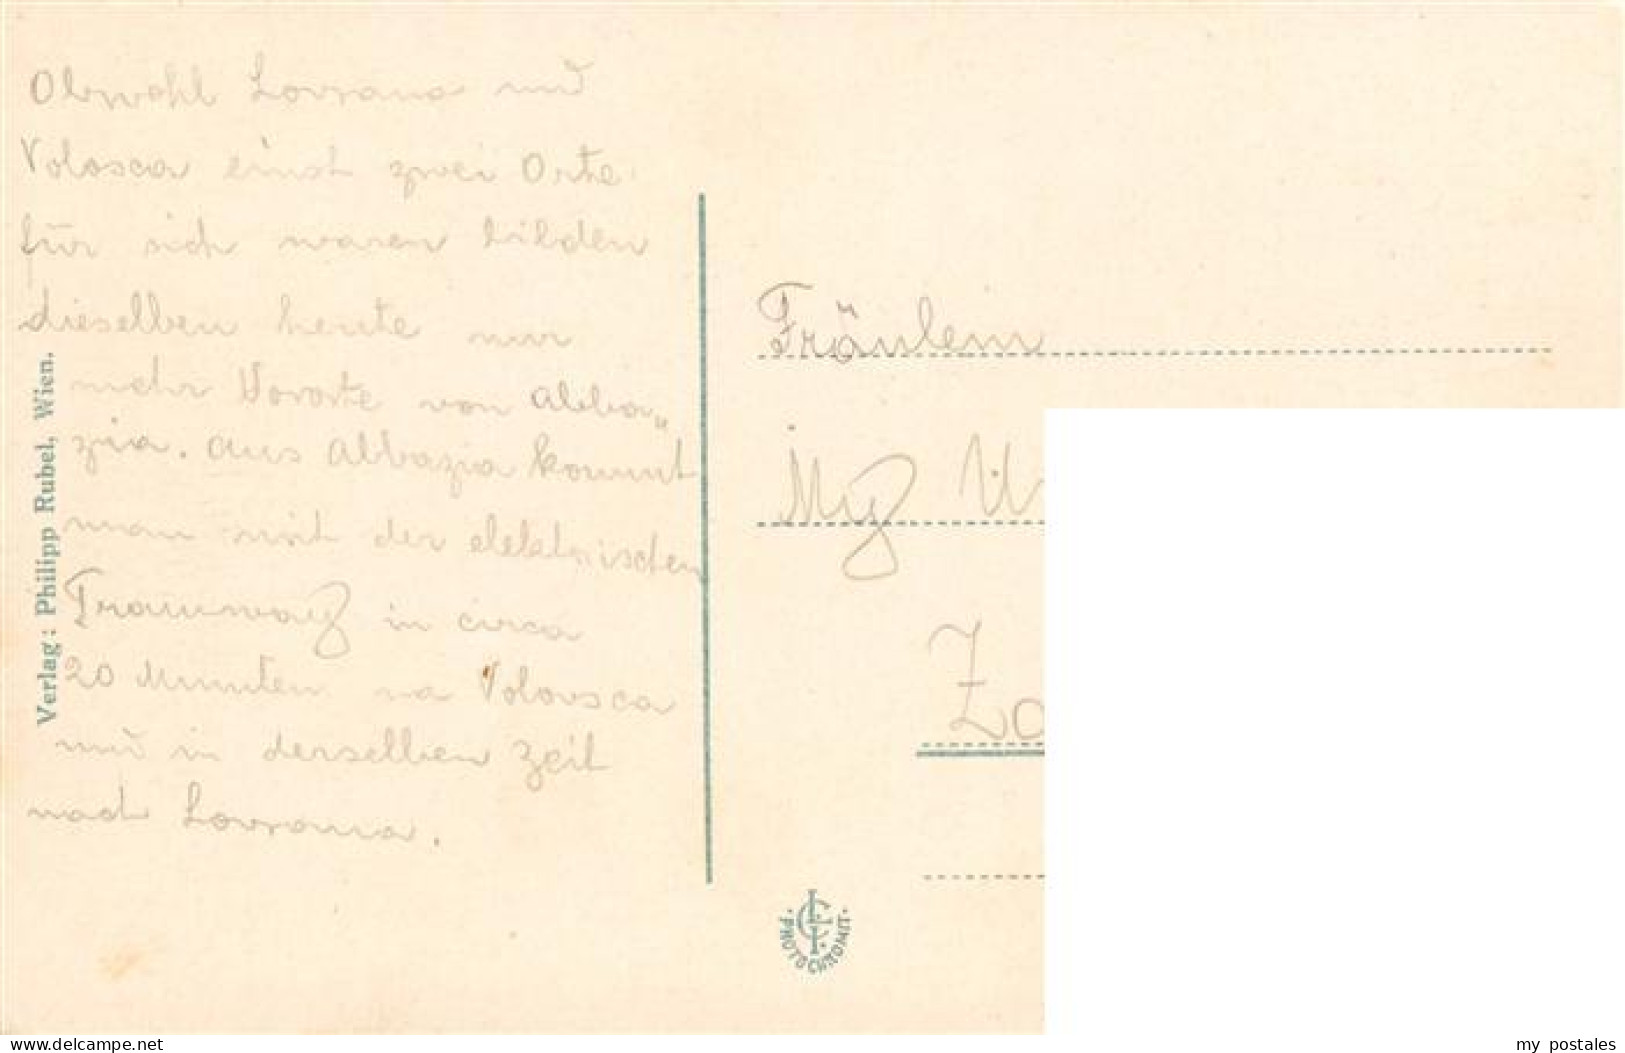 Obwohl Lovrana und
Volosca einst zwei Orte
für sich waren bilden
dieselben heute nur
mehr Vororte von Abba„
zia. Aus Abbazia kommt
man mit der elektrischen
Tramway in circa
20 Minuten na Volovsca
und in derselben Zeit
nach Lovrana.
Verlag: Philipp Rubel, Wien.
Fräulein
PHOTOCHROMIT
www.delcampe.net
my_postales